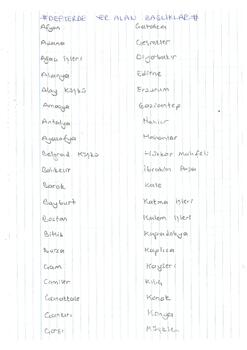 #DEFTERDE YER ALAN BAŞLIKLAR#
Afyon
Adana
Ağaç işleri
Alanya
Alay Köşkü
Amasya
Antalya
Ayasofya
Belgrad Köşkü
Balıkesir
Barok
Bayburt
Bostan
Bitlis
Bursa
Cam
Camiler
Çanakkale
Çankırı
Çarşı
Çeşmeler
Diyarbakır
Edirne
Erzurum
Gaziantep
Hünkar Mahfeli
İbrahim Paşa
Kale
Katma işleri
Kalem işleri
Kapadokya
Kaplıca
Kayseri
Kılıç
Konak
Konya